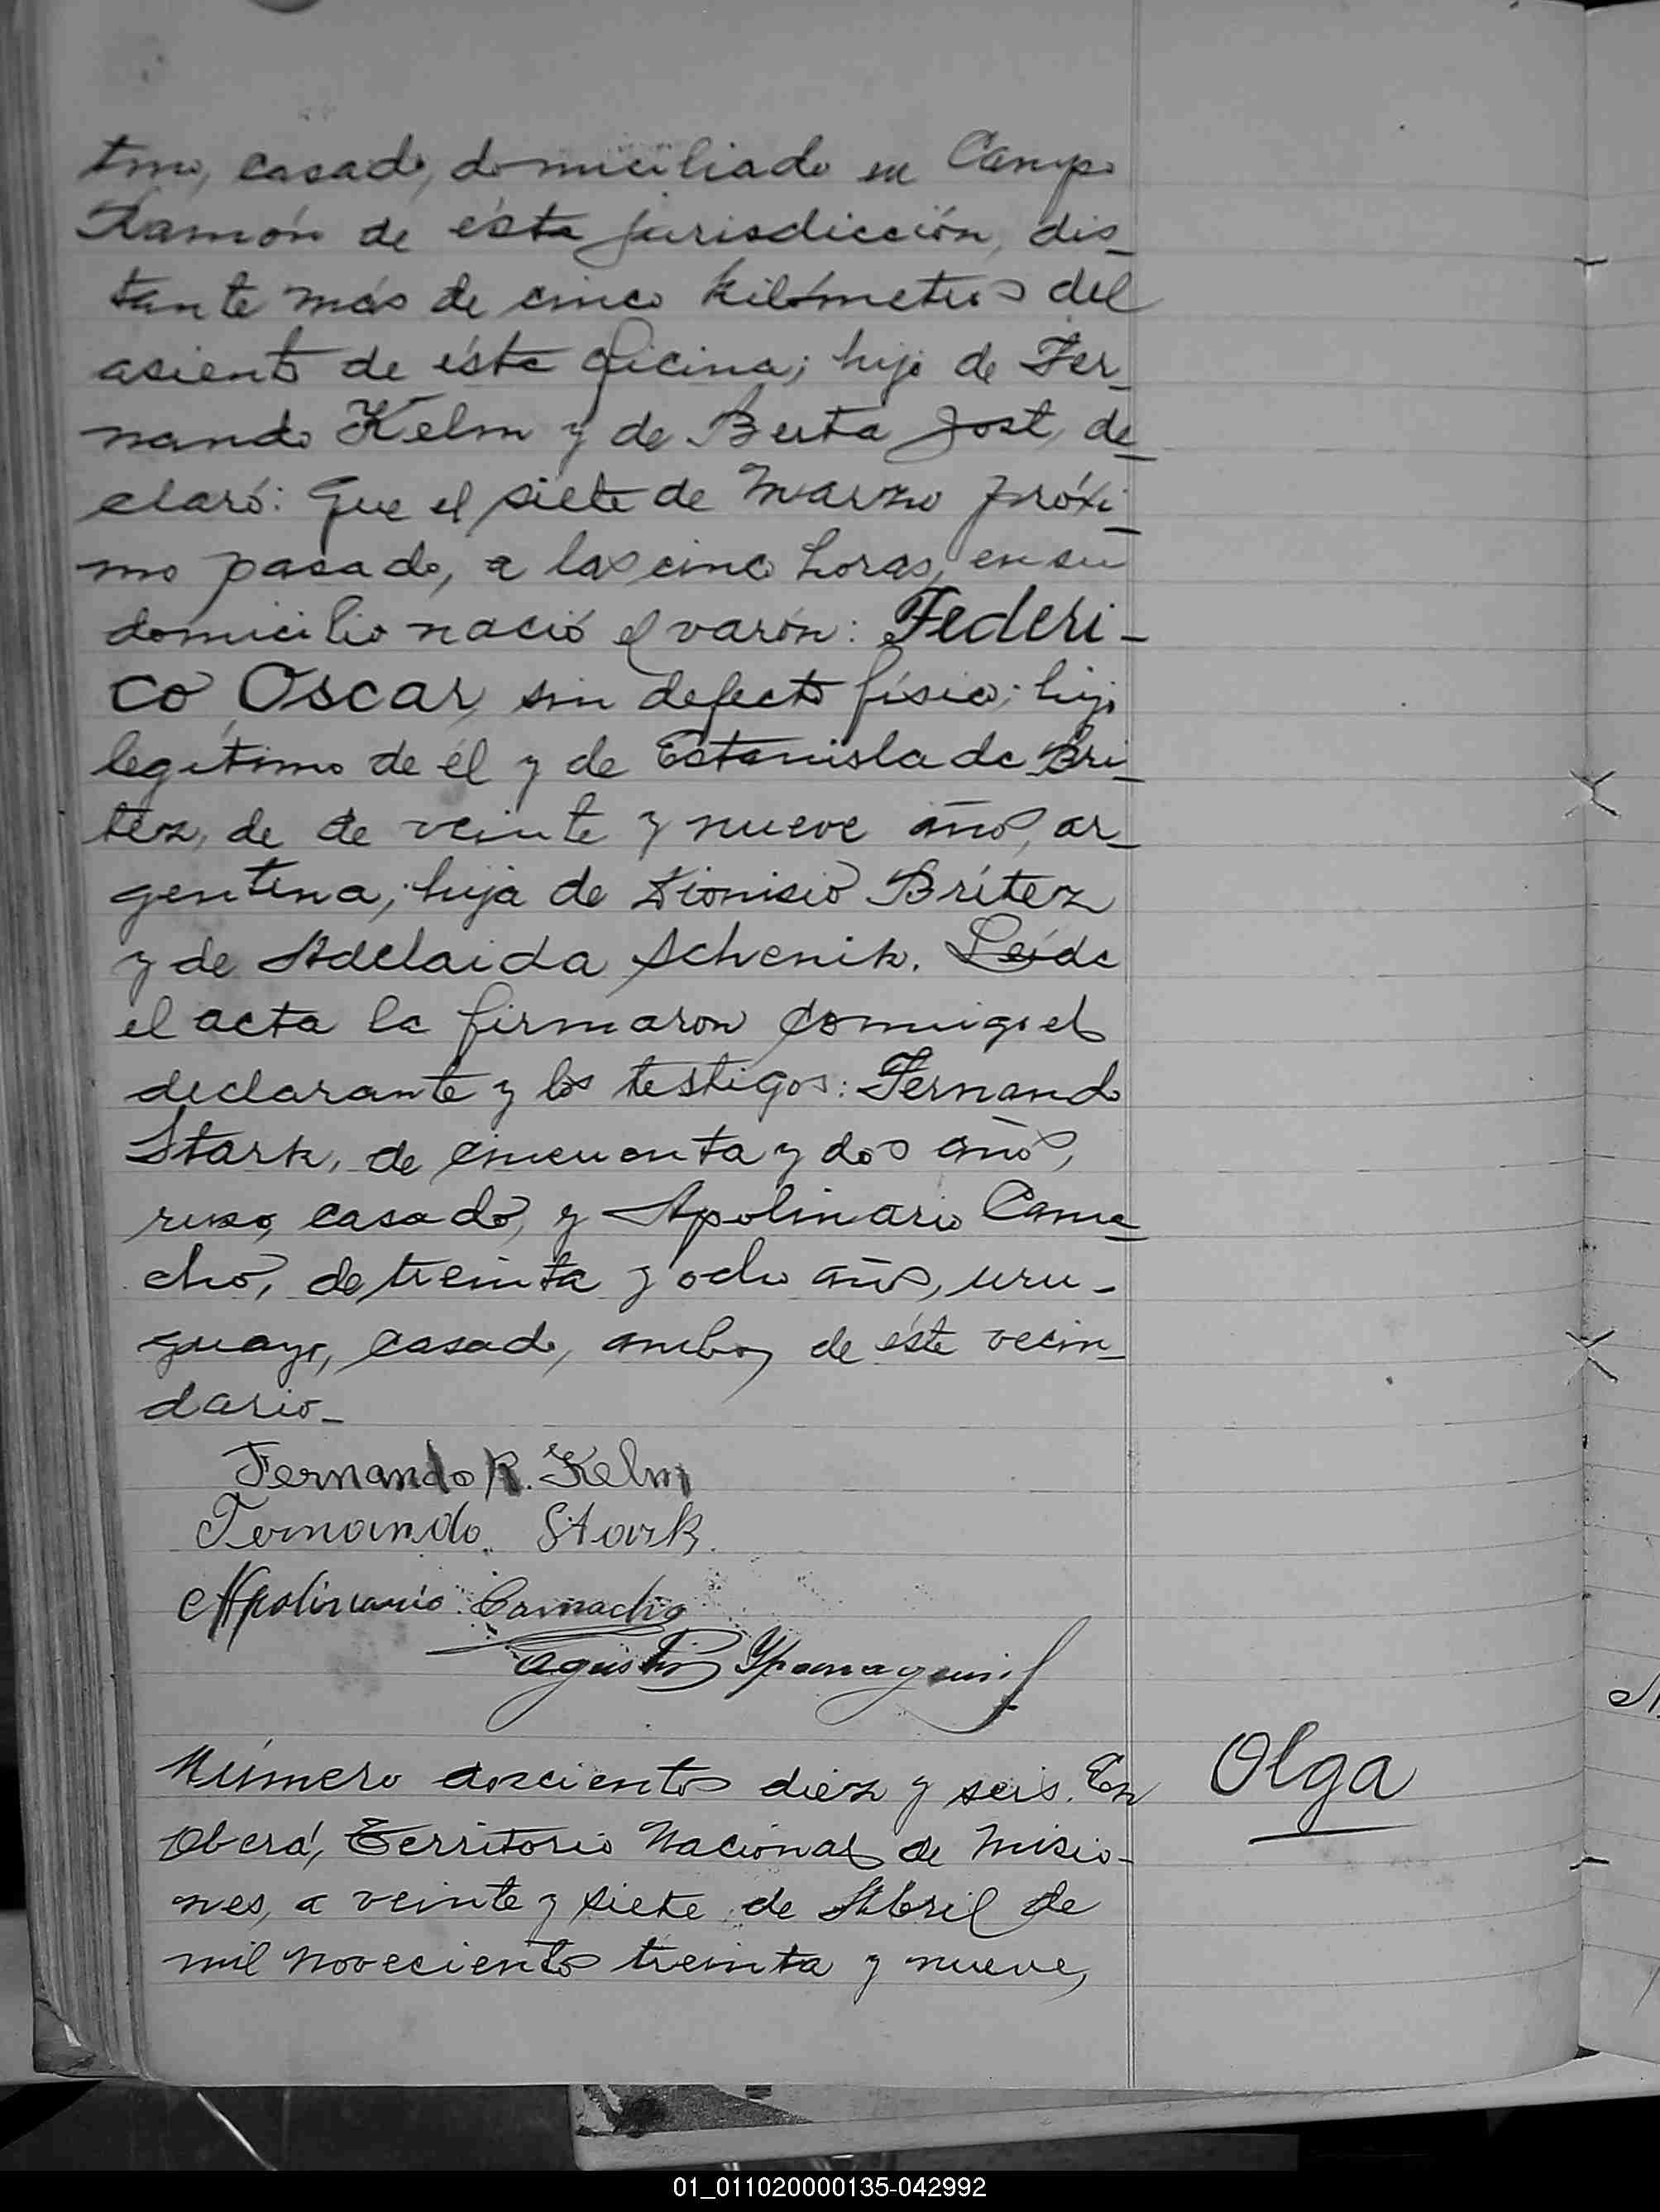 tino, casado, domiciliado en Campo
Ramón de ésta jurisdicción, dis-
tante más de cinco kilómetros del
asiento de ésta oficina; hijo de Fer-
nando Kelm y de Berta Jost, de-
claró: Que el siete de Marzo próxi-
mo pasado, a las cinco horas, en su
domicilio nació el varón: Federi-
co Oscar, sin defecto físico; hijo
legítimo de él y de Estanislada Bri-
tez, de de veinte y nueve años, ar-
gentina; hija de Dionisio Britez
y de Adelaida Schenik. Leida
el acta la firmaron conmigo el
declarante y los testigos: Fernando
Stark, de cincuenta y dos años,
ruso, casado, y Apolinario Cama-
cho, de treinta y ocho años, uru-
guayo, casado, ambos de éste vecin-
dario-
Fernando R. Kelm
Fernando Stark.
Apolinario Camacho
Agustin
Número doscientos diez y seis. En
Oberá, Territorio Nacional de Misio-
nes, a veinte y siete de Abril de
mil novecientos treinta y nueve,
Olga
01_011020000135-042992